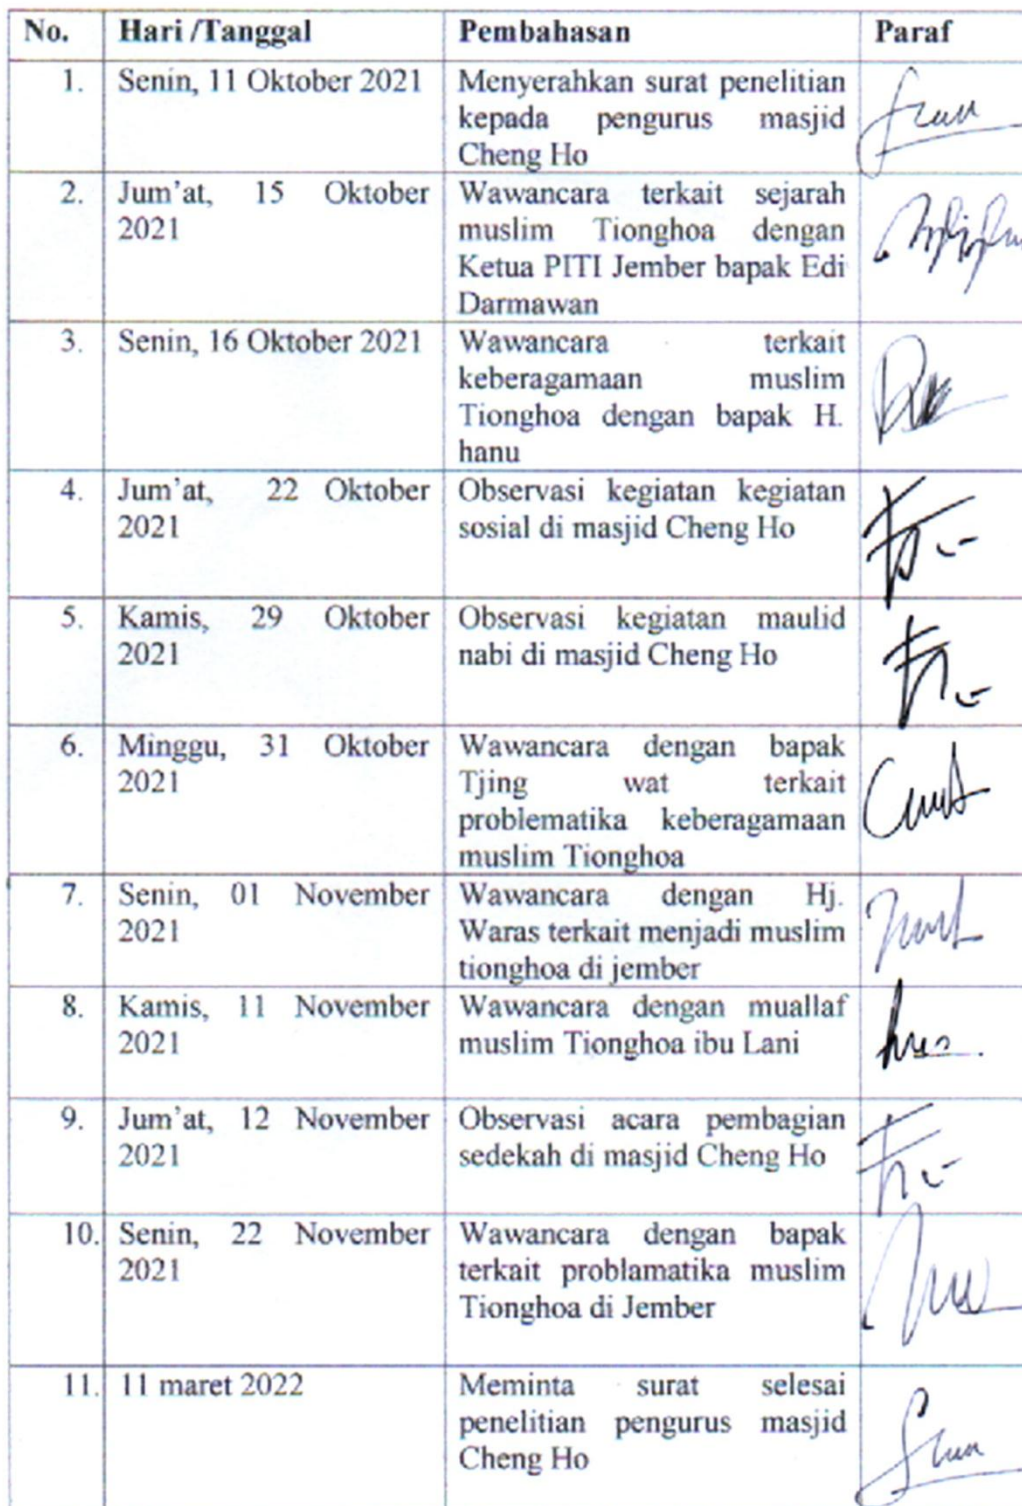 No. Hari /Tanggal Pembahasan Paraf
1. Senin, 11 Oktober 2021 Menyerahkan surat penelitian
kepada pengurus masjid
Cheng Ho
2. Jum'at, 15 Oktober Wawancara terkait sejarah
2021 muslim Tionghoa dengan
Ketua PITI Jember bapak Edi
Darmawan
3. Senin, 16 Oktober 2021 Wawancara terkait
keberagamaan muslim
Tionghoa dengan bapak H.
hanu
4. Jum'at, 22 Oktober Observasi kegiatan kegiatan
2021 sosial di masjid Cheng Ho
5. Kamis, 29 Oktober Observasi kegiatan maulid
2021 nabi di masjid Cheng Ho
6. Minggu, 31 Oktober Wawancara dengan bapak
2021 Tjing wat terkait
problematika keberagamaan
muslim Tionghoa
7. Senin, 01 November Wawancara dengan Hj.
2021 Waras terkait menjadi muslim
tionghoa di jember
8. Kamis, 11 November Wawancara dengan muallaf
2021 muslim Tionghoa ibu Lani
9. Jum'at, 12 November Observasi acara pembagian
2021 sedekah di masjid Cheng Ho
10. Senin, 22 November Wawancara dengan bapak
2021 terkait problamatika muslim
Tionghoa di Jember
11. 11 maret 2022 Meminta surat selesai
penelitian pengurus masjid
Cheng Ho